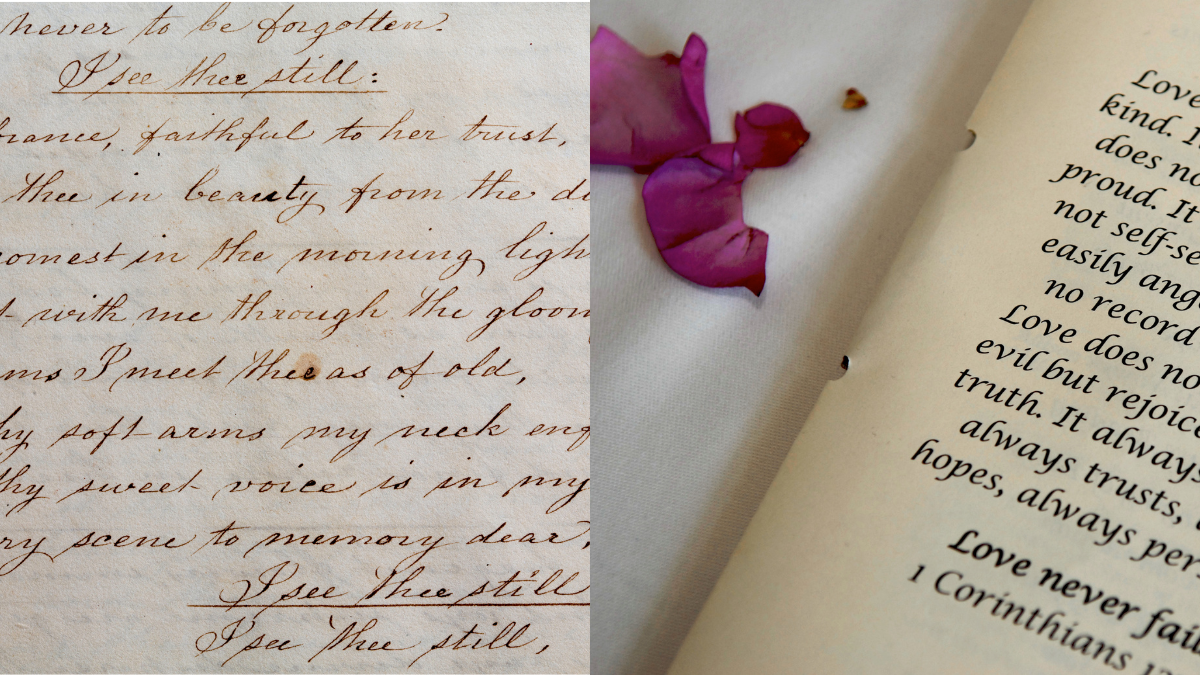 never to be forgotten.
I see thee still:
brance, faithful to her trust,
thee in beauty from the d
comest in the morning ligh
t with me through the gloom
ms I meet thee as of old,
hy soft arms my neck eng
thy sweet voice is in my
ry scene to memory dear,
I see thee still
I see thee still,
Love
kind. I
does no
proud. It
not self-se
easily ang
no record
Love does no
evil but rejoice
truth. It always
always trusts,
hopes, always per
Love never fai
1 Corinthians 13